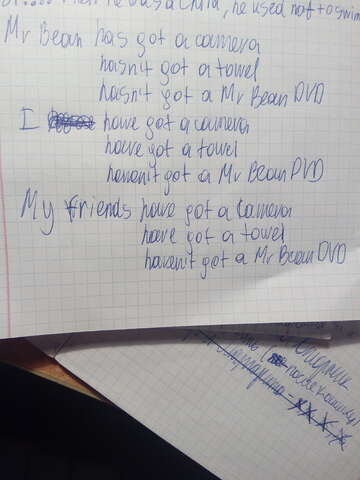 When he was a child, he used not to swim
Mr Bean has got a camera
hasn't got a towel
hasn't got a Mr Bean DVD
I have got a camera
have got a towel
haven't got a Mr Bean DVD
My friends have got a camera
have got a towel
haven't got a Mr Bean DVD